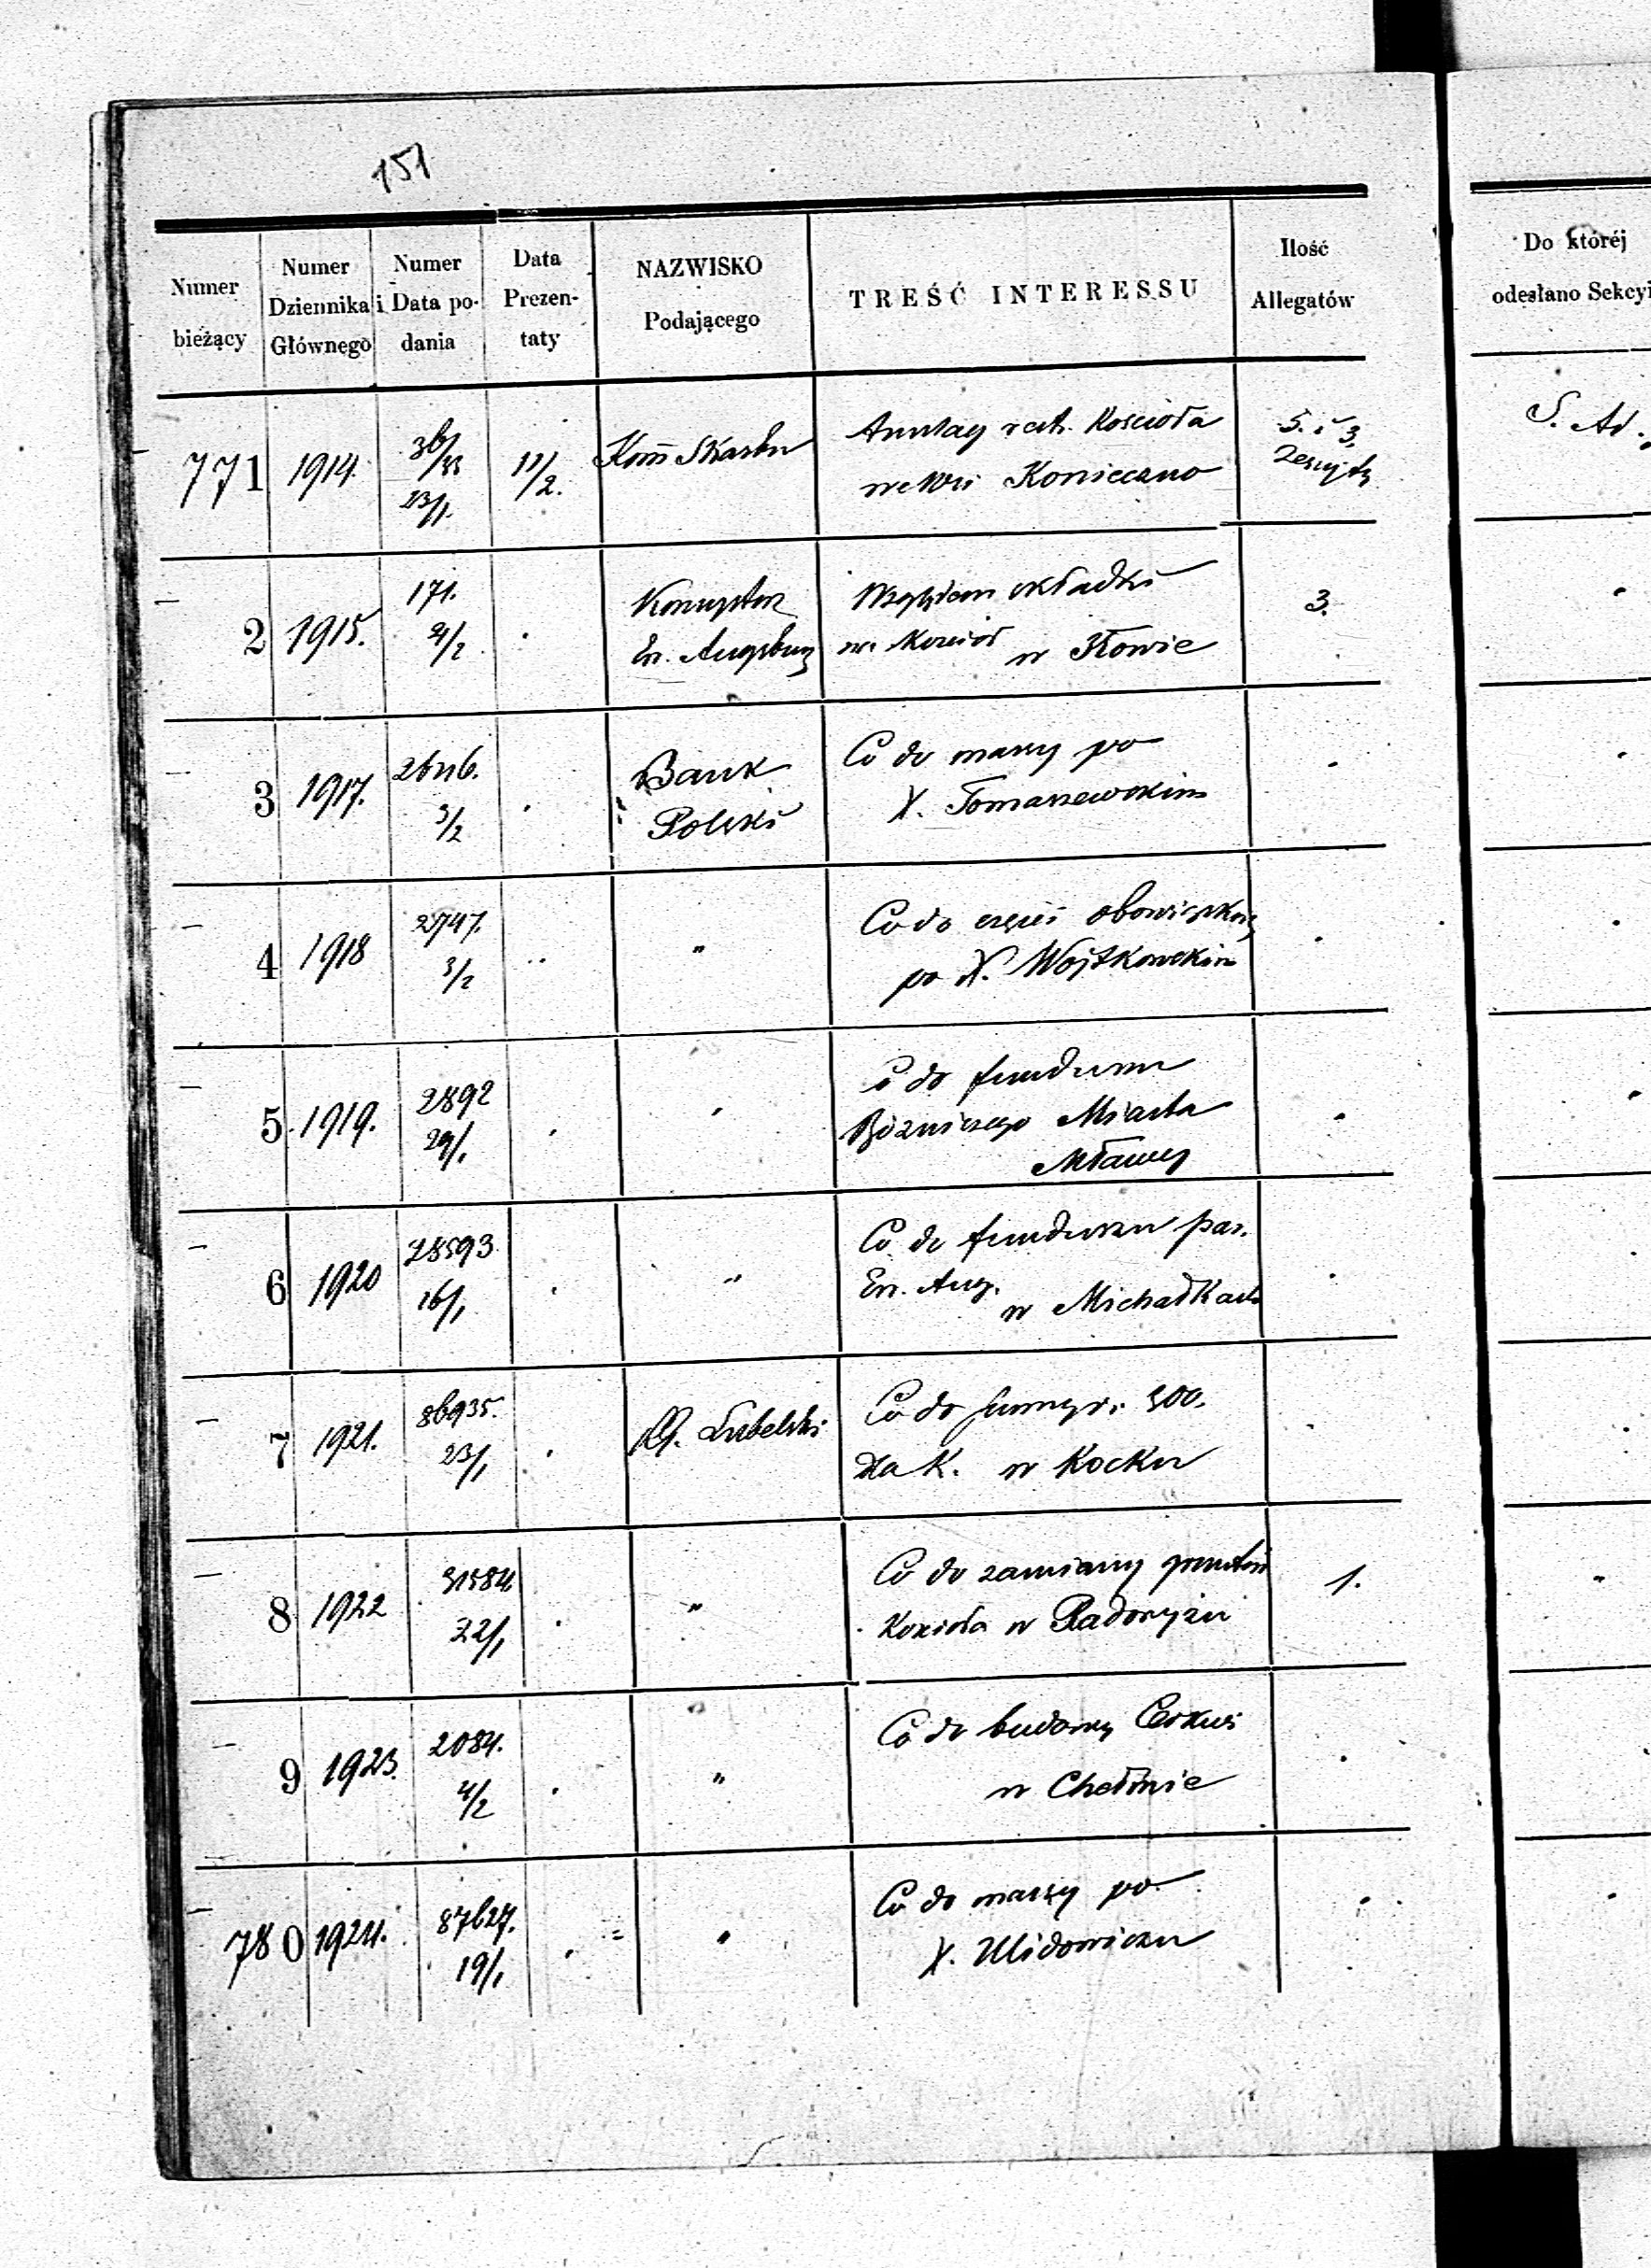 151
Numer bieżący
Numer Dziennika Głównego
Numer i Data podania
Data Prezentaty
NAZWISKO Podającego
TREŚĆ INTERESSU
Ilość Allegatów
Do któréj odesłano Sekcyi
771 1914. 23/1. 11/2. Kom Skarbu
Kościoła
we Wsi Konieczno
5. i 3.
Zeszyty
2 1915. 171. 4/2 .
Konsystorz
Ew. Augsburg
Względem składki
na Kościół w Iłowie
3.
3 1917. 3/2 .
Bank
Polski
Co do massy po
X. Tomaszewskim
4 1918 2747. 3/2 "
Co do części obowiązkowej
po X. Wojtkowskim
5 1919. 2892 29/1 .
Co do funduszu
Bóżniczego Miasta
Mławy
6 1920 78593 16/1 . "
Co do funduszu par.
Ew. Aug.
w Michałkach
7 1921. 86935. 23/1 .
RG. Lubelski
Co do summy r. 300.
dla K. w Kocku
8 1922 31584 22/1 . "
Co do zamiany gruntów
Kościoła w Radoryżu
1.
9 1923. 2084. 4/2 . "
Co do budowy Cerkwi
w Chełmie
780 1924. 87627. 19/1 . "
Co do massy po
X. Ulidowiczu